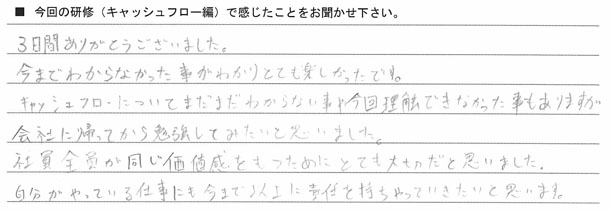 ■ 今回の研修（キャッシュフロー編）で感じたことをお聞かせ下さい。
3日間ありがとうございました。
今までわからなかった事がわかりとても楽しかったです。
キャッシュフローについてまだまだわからない事や今回理解できなかった事もありますが
会社に帰ってから勉強してみたいと思いました。
社員全員が同じ価値感をもつためにとても大切だと思いました。
自分がやっている仕事にも今まで以上に責任を持ちやっていきたいと思います。